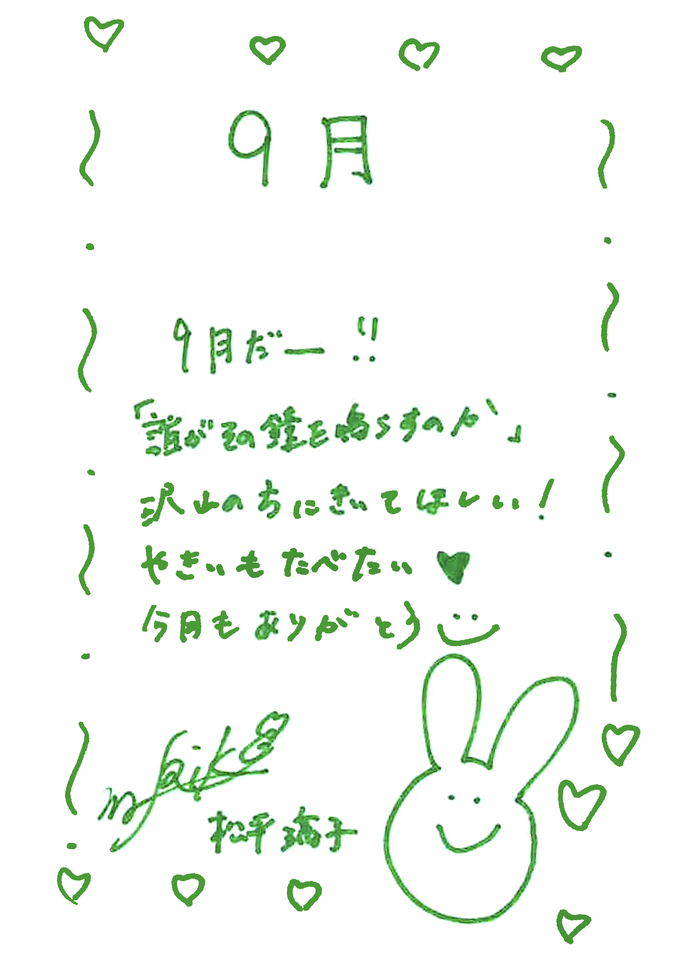 9月
9月だー!!
「誰がその鐘を鳴らすのか」
沢山の方にきいてほしい!
やきいもたべたい♥
今月もありがとう
松平璃子